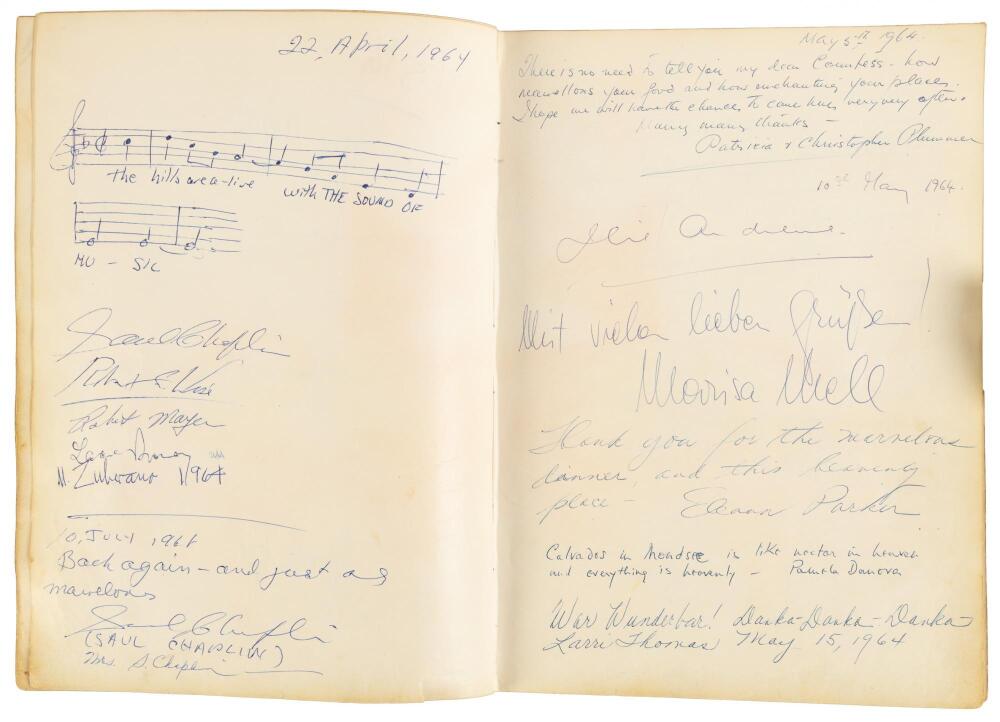 22, April, 1964
the hills are a-live with THE SOUND OF
MU - SIC
Saul Chaplin
Robert E. Wise
Robert Mayer
M. Zuberano 1964
10, JULY 1966
Back again - and just as
marvelous
Saul Chaplin
(SAUL CHAPLIN)
Mrs. S. Chaplin
May 5th 1964.
There is no need to tell you my dear Countess - how
marvellous your food and how enchanting your places.
I hope we will have the chances to come here very very often.
Many many thanks -
Patricia & Christopher Plummer
10 May 1964.
Julie Andrews.
Mit vielen lieben Grüßen!
Marisa Mell
Thank you for the marvelous
dinner, and this heavenly
place -
Eleanor Parker
Calvados in Mondsee is like nectar in heaven
and everything is heavenly - Pamela Danova
War Wunderbar! Danka-Danka-Danka-
Larri Thomas May 15, 1964